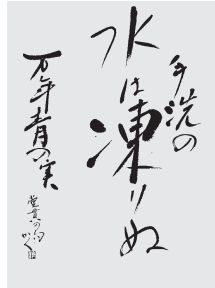 手洗の
水は凍りぬ
万年青の実